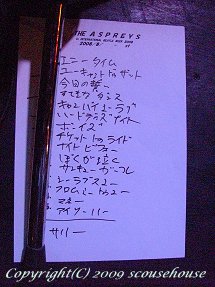 THE ASPREYS
2008/8/
エニータイム
ユーキャントドゥザット
今日の誓い
すてきなダンス
キャントバイミーラブ
ハードデイズナイト
ボーイズ
チケットトゥライド
ナイトビフォー
ぼくが泣く
サンキューガール
シーラブズユー
フロムミートゥユー
マネー
アイソーハー
サリー
Copyright(C) 2009 scousehouse